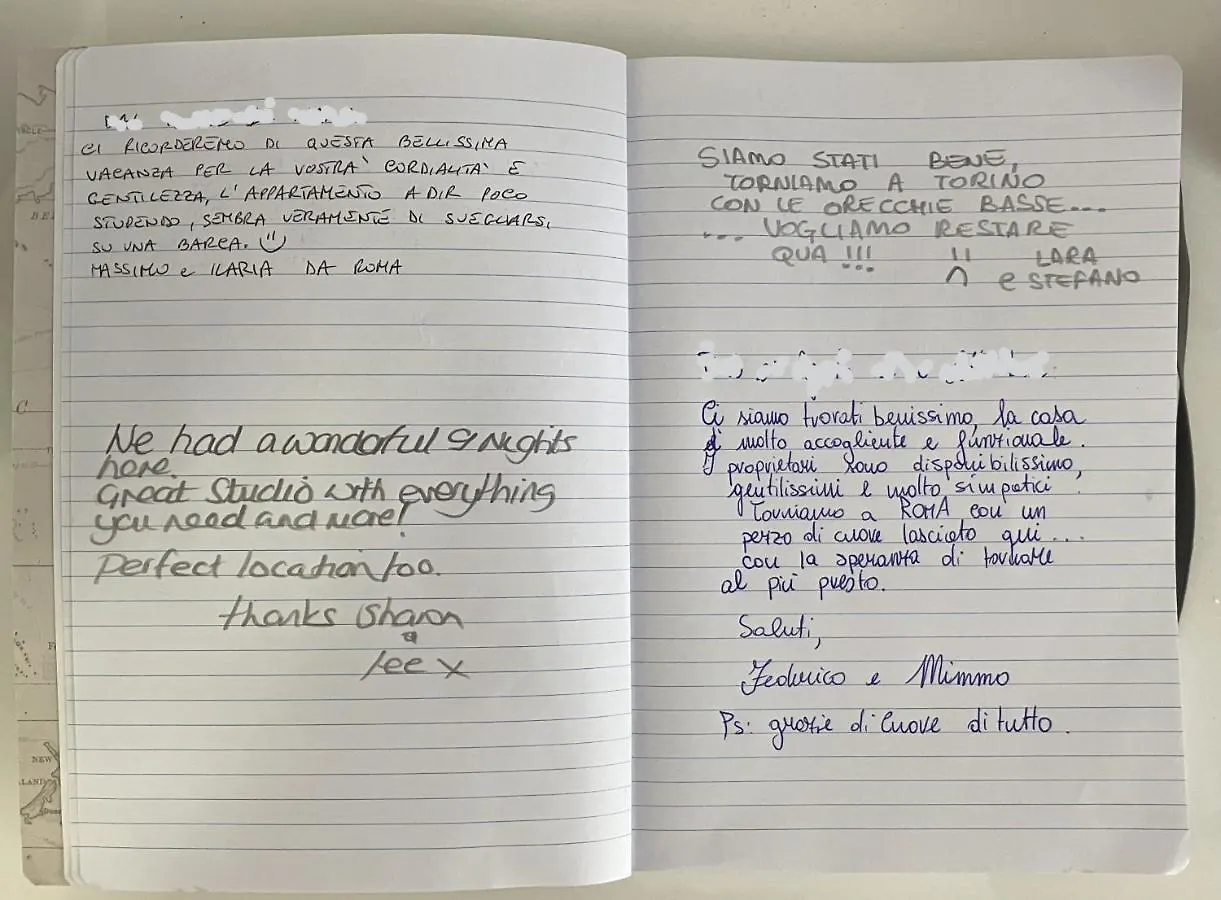 CI RICORDEREMO DI QUESTA BELLISSIMA
VACANZA PER LA VOSTRA CORDIALITA' E
GENTILEZZA, L'APPARTAMENTO A DIR POCO
STUPENDO, SEMBRA VERAMENTE DI SVEGLIARSI
SU UNA BARCA.
MASSIMO e ILARIA DA ROMA
We had a wonderful 9 Nights
here.
Great Studio with everything
you need and more!
Perfect location too.
thanks Sharon
&
Lee x
SIAMO STATI BENE,
TORNIAMO A TORINO
CON LE ORECCHIE BASSE...
... VOGLIAMO RESTARE
QUA !!! LARA
e STEFANO
Ci siamo trovati benissimo, la casa
è molto accogliente e funzionale.
I proprietari sono disponibilissimo,
gentilissimi e molto simpatici.
Torniamo a ROMA con un
pezzo di cuore lasciato qui...
con la speranza di tornare
al più presto.
Saluti,
Federico e Mimmo
Ps: grazie di cuore di tutto.
NEW